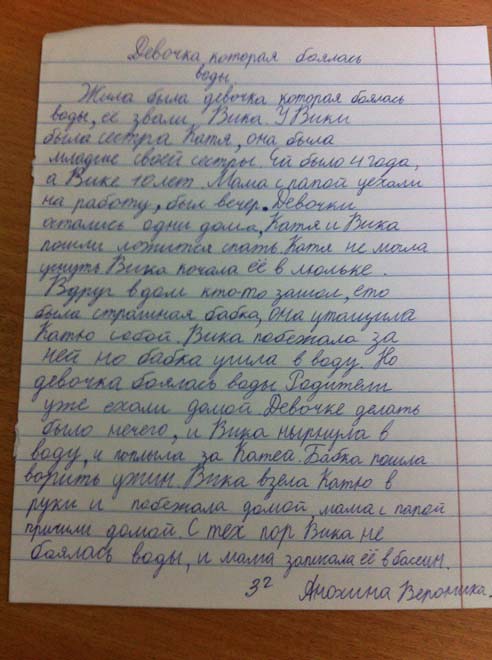 Девочка которая боялась
воды
Жила была девочка которая боялась
воды, её звали Вика. У Вики
была сестра Катя, она была
младше своей сестры. Ей было 4 года,
а Вике 10 лет. Мама с папой уехали
на работу, был вечер. Девочки
остались одни дома, Катя и Вика
пошли ложится спать. Катя не могла
уснуть Вика качала её в люльке.
Вдруг в дом кто-то зашол, ето
была страшная бабка, она утащила
Катю собой. Вика побежала за
ней но бабка ушла в воду. Но
девочка боялась воды Родители
уже ехали домой Девочке делать
было нечего, и Вика нырнула в
воду, и поплыла за Катей. Бабка пошла
варить ужин. Вика взела Катю в
руки и побежала домой, мама с папой
пришли домой. С тех пор Вика не
боялась воды, и мама записала её в бассин.
3г Анохина Вероника.